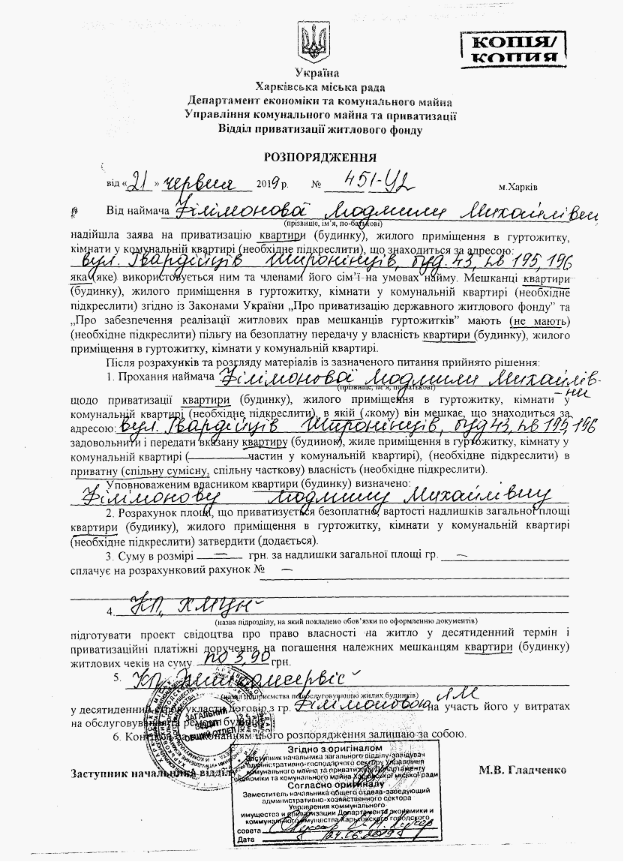 КОПІЯ/
КОПИЯ
Україна
Харківська міська рада
Департамент економіки та комунального майна
Управління комунального майна та приватизації
Відділ приватизації житлового фонду
РОЗПОРЯДЖЕННЯ
від « 21 » червня 2019 р. № 451-У2 м.Харків
Від наймача Філімонової Людмили Михайлівни
(прізвище, ім'я, по-батькові)
надійшла заява на приватизацію квартири (будинку), жилого приміщення в гуртожитку,
кімнати у комунальній квартирі (необхідне підкреслити), що знаходиться за адресою:
вул. Гвардійців Широнінців, буд. 43, кв 195, 196
яка (яке) використовується ним та членами його сім'ї на умовах найму. Мешканці квартири
(будинку), жилого приміщення в гуртожитку, кімнати у комунальній квартирі (необхідне
підкреслити) згідно із Законами України „Про приватизацію державного житлового фонду" та
„Про забезпечення реалізації житлових прав мешканців гуртожитків" мають (не мають)
(необхідне підкреслити) пільгу на безоплатну передачу у власність квартири (будинку), жилого
приміщення в гуртожитку, кімнати у комунальній квартирі.
Після розрахунків та розгляду матеріалів із зазначеного питання прийнято рішення:
1. Прохання наймача Філімонової Людмили Михайлів-
ни
(прізвище, ім'я, по-батькові)
щодо приватизації квартири (будинку), жилого приміщення в гуртожитку, кімнати у
комунальній квартирі (необхідне підкреслити), в якій (якому) він мешкає, що знаходиться за
адресою: вул. Гвардійців Широнінців, буд 43, кв 195, 196
задовольнити і передати вказану квартиру (будинок), жиле приміщення в гуртожитку, кімнату у
комунальній квартирі (частин у комунальній квартирі), (необхідне підкреслити) в
приватну (спільну сумісну, спільну часткову) власність (необхідне підкреслити).
Уповноваженим власником квартири (будинку) визначено:
Філімонову Людмилу Михайлівну
2. Розрахунок площі, що приватизується безоплатно, вартості надлишків загальної площі
квартири (будинку), жилого приміщення в гуртожитку, кімнати у комунальній квартирі
(необхідне підкреслити) затвердити (додається).
3. Суму в розмірі — грн. за надлишки загальної площі гр. —
сплачує на розрахунковий рахунок № —
4. КП, ХМЦН
(назва підрозділу, на який покладено обов'язки по оформленню документів)
підготувати проект свідоцтва про право власності на житло у десятиденний термін і
приватизаційні платіжні доручення на погашення належних мешканцям квартири (будинку)
житлових чеків на суму по 3,90 грн.
5. КП Житлокомсервіс
(назва підприємства по обслуговуванню жилих будинків)
у десятиденний строк укласти договір з гр. Філімоновою ЛМ на участь його у витратах
на обслуговування та ремонт будинку.
6. Контроль за виконанням цього розпорядження залишаю за собою.
ЗАГАЛЬНИЙ
ВІДДІЛ
ОБЩИЙ ОТДЕЛ
Згідно з оригіналом
Заступник начальника загального відділу-завідувач
адміністративно-господарчого сектору Управління
комунального майна та приватизації Департаменту
економіки та комунального майна Харківської міської ради
Согласно оригиналу
Заместитель начальника общего отдела-заведующий
административно-хозяйственного сектора
Управления коммунального
имущества и приватизации Департамента экономики и
коммунального имущества Харьковского городского
совета
Дата
Заступник начальника відділу М.В. Гладченко